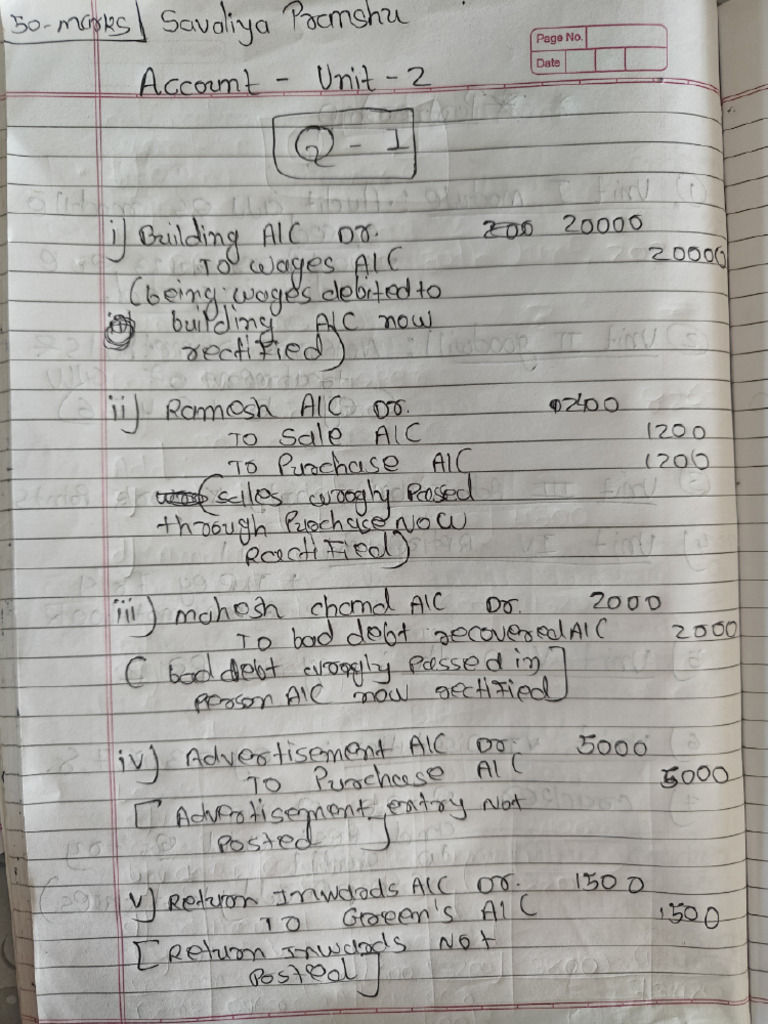 50-marks Savaliya Pramshu
Page No.
Date
Account - Unit - 2
Q - 1
i) Building A/C Dr. 20000
To wages A/C 20000
(being wages debited to
building A/C now
rectified)
ii) Ramesh A/C Dr.
To Sale A/C 1200
To Purchase A/C 1200
(sales wrogly Passed
through Purchase Now
Rectified)
iii) mahesh chand A/C Dr. 2000
To bad debt recovered A/C 2000
( bad debt wrogly passed in
person A/C now rectified]
iv) Advertisement A/C Dr. 5000
To Purchase A/C 5000
[ Advertisement entry Not
Posted ]
v) Return Inwards A/C Dr. 1500
To Green's A/C 1500
[ Return Inwards Not
Posted ]